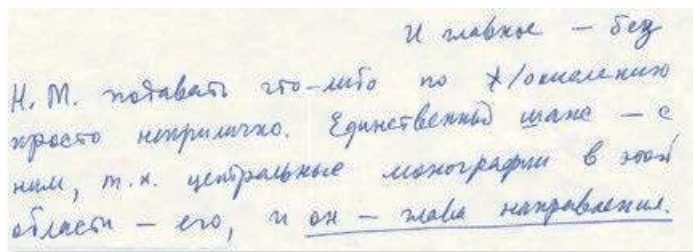 И главное — без
Н. М. подавать что-либо по х/окислению
просто неприлично. Единственный шанс — с
ним, т.к. центральные монографии в этой
области — его, и он — глава направления.